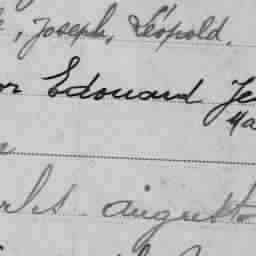 , Joseph, Léopold.
or Edouard Je
Ma
rls auguste